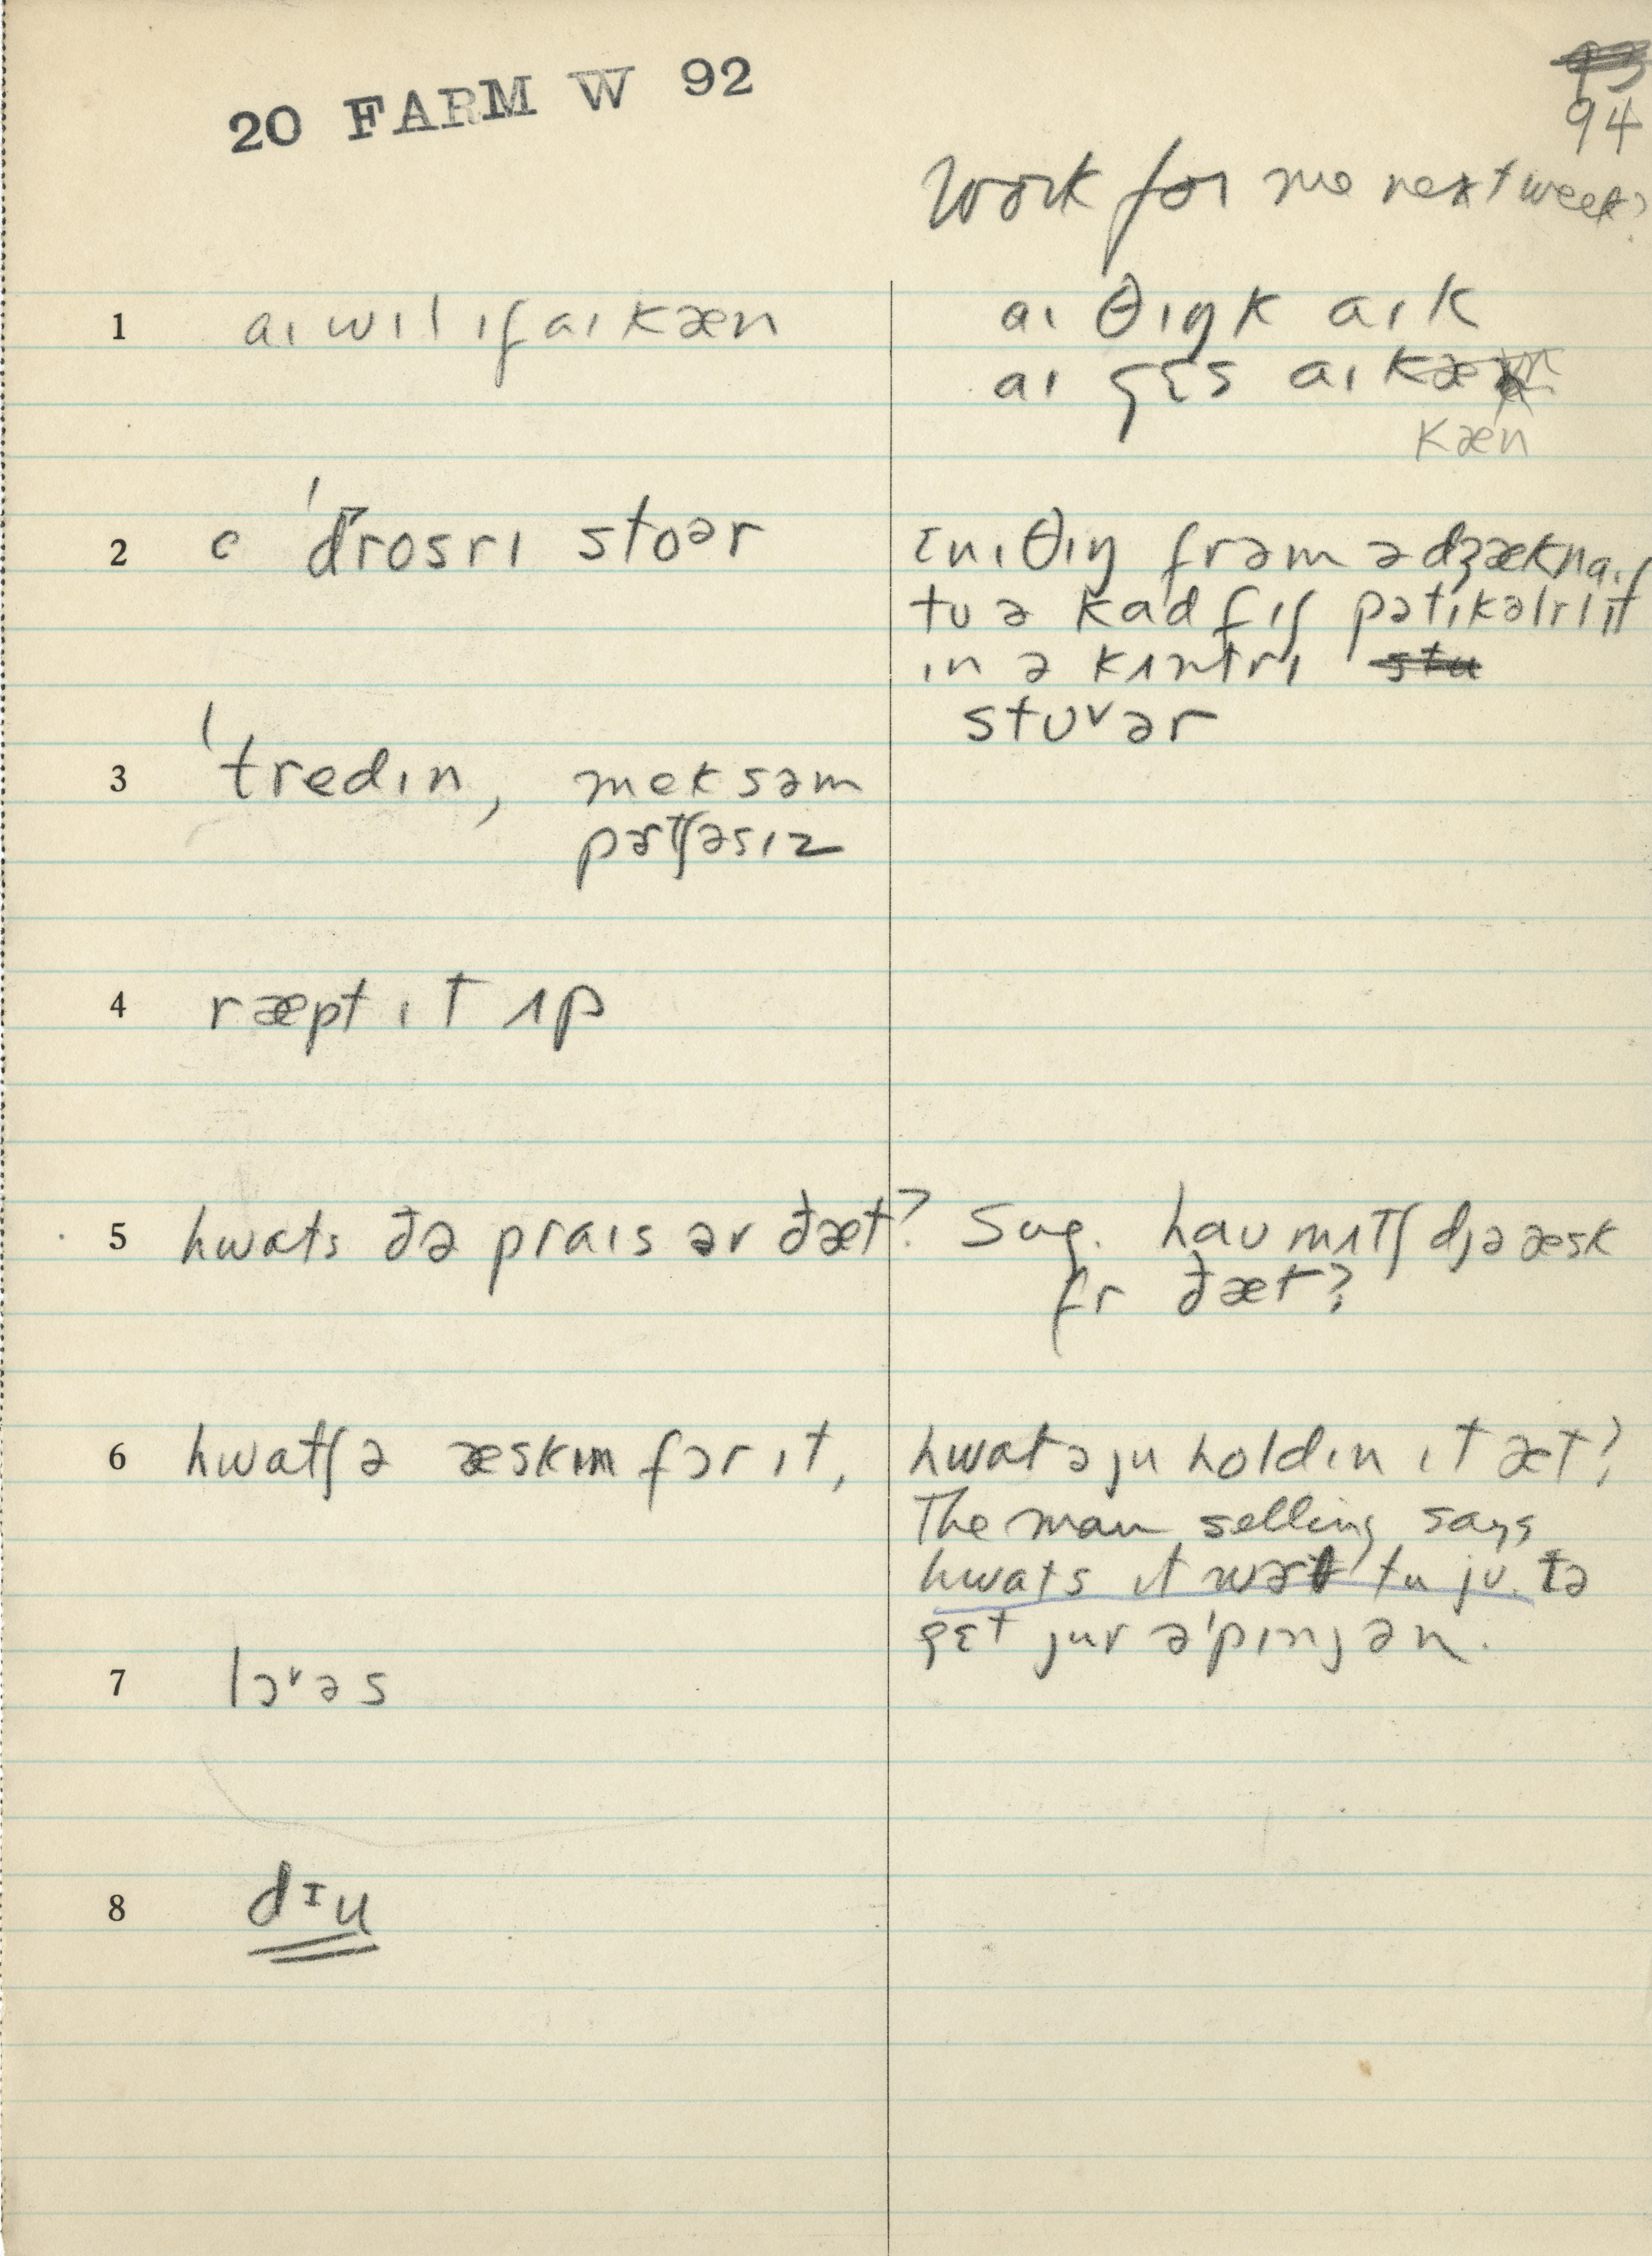 20 FARM W 92
93
94
Work for me next week?
1 aɪ wɪl ɪf aɪ kæn
aɪ θɪŋk aɪ k
aɪ gɛs aɪ
kæn
2 'drosrɪ stoər
ɛnɪθɪŋ frəm ə dʒæknaɪf
tu ə kɑdfɪʃ pətɪkəlrlɪ
ɪn ə kʌntrɪ stu
stuᵛər
3 'tredɪn, mek səm
pərtʃəsɪz
4 ræpt ɪt ʌp
5 hwɑts ðə praɪs əv ðæt?
Sug. haʊ mʌtʃ djə æsk
fr ðæt?
6 hwɑtʃə æskɪn fər ɪt,
hwɑt ə ju holdɪn ɪt æt?
The man selling says
hwɑts ɪt wərθ tu ju. tə
gɛt jur ə'pɪnjən.
7 lɔᵛəs
8 dɪu